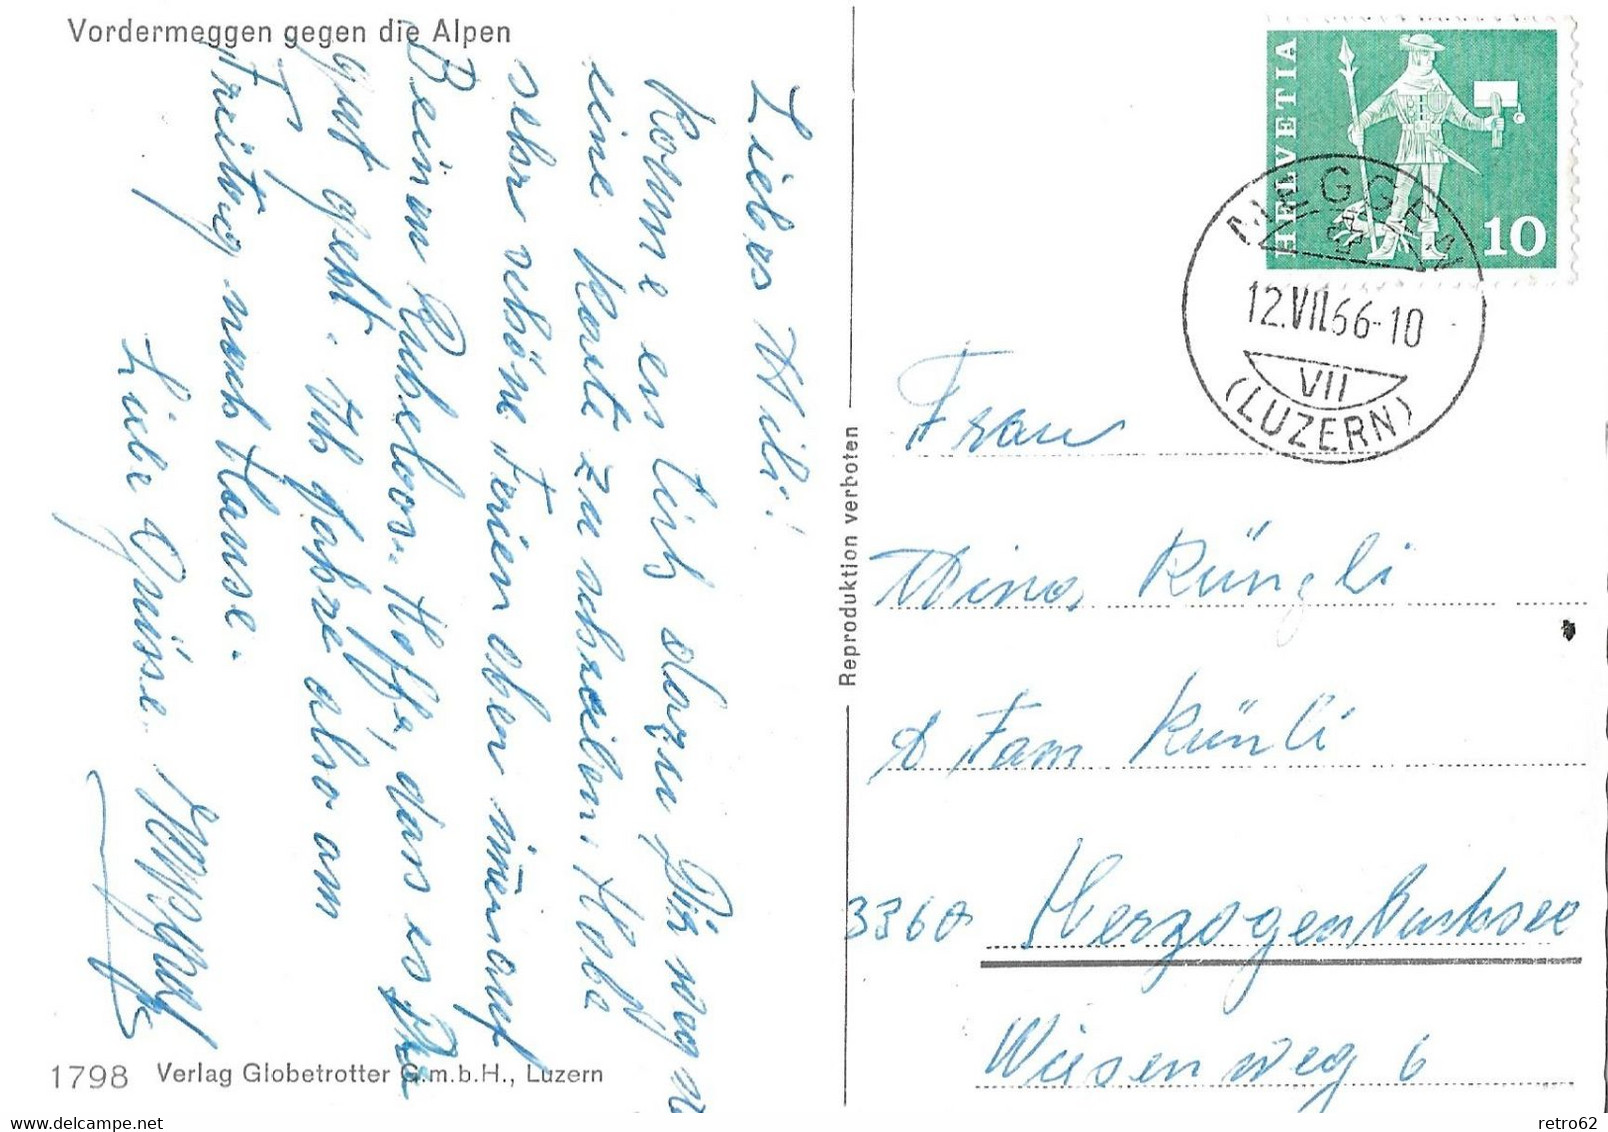 Vordermeggen gegen die Alpen
Liebes
Komme endlich dazu, Dir
eine Karte zu schreiben. Habe
sehr schöne Ferien oben
Beim Hoffe, dass es Dir
gut geht. Ich fahre also am
Freitag nach Hause.
Liebe Grüsse
1798 Verlag Globetrotter G.m.b.H., Luzern
Reproduktion verboten
HELVETIA
10
MEGGEN
12.VII.66-10
VII
(LUZERN)
Frau
Fam
3360 Herzogenbuchsee
Wiesenweg 6
retro62